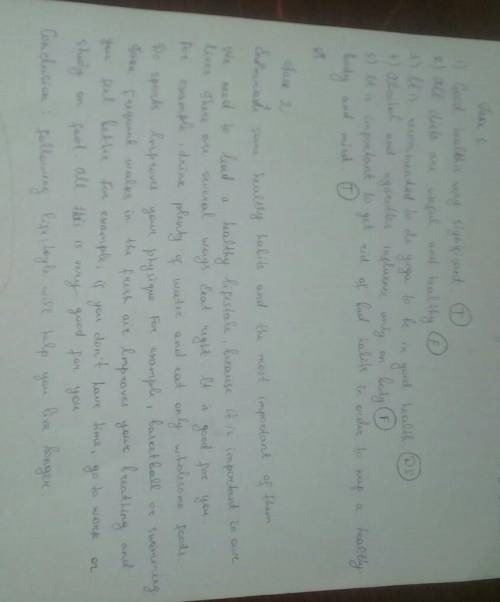 Task 1
1) Good health is very significant (T)
2) All diets are useful and healthy (F)
3) It is recommended to do yoga to be in good health (DS)
4) Alcohol and cigarettes influence only on body (F)
5) It is important to get rid of bad habits in order to keep a healthy
body and mind (T)
Task 2
some healthy habits and the most important of them
We need to lead a healthy lifestale, because it is important in our
lives There are several ways Eat right It is good for you
For example, drink plenty of water and eat only wholesome foods
Do sports Improves your physique For example, basketball or swimming
Frequent walks in the fresh air Improves your breathing and
you feel better For example, if you don't have time, go to work or
study on foot All this is very good for you
Conclusion: following lifestyle will help you live longer